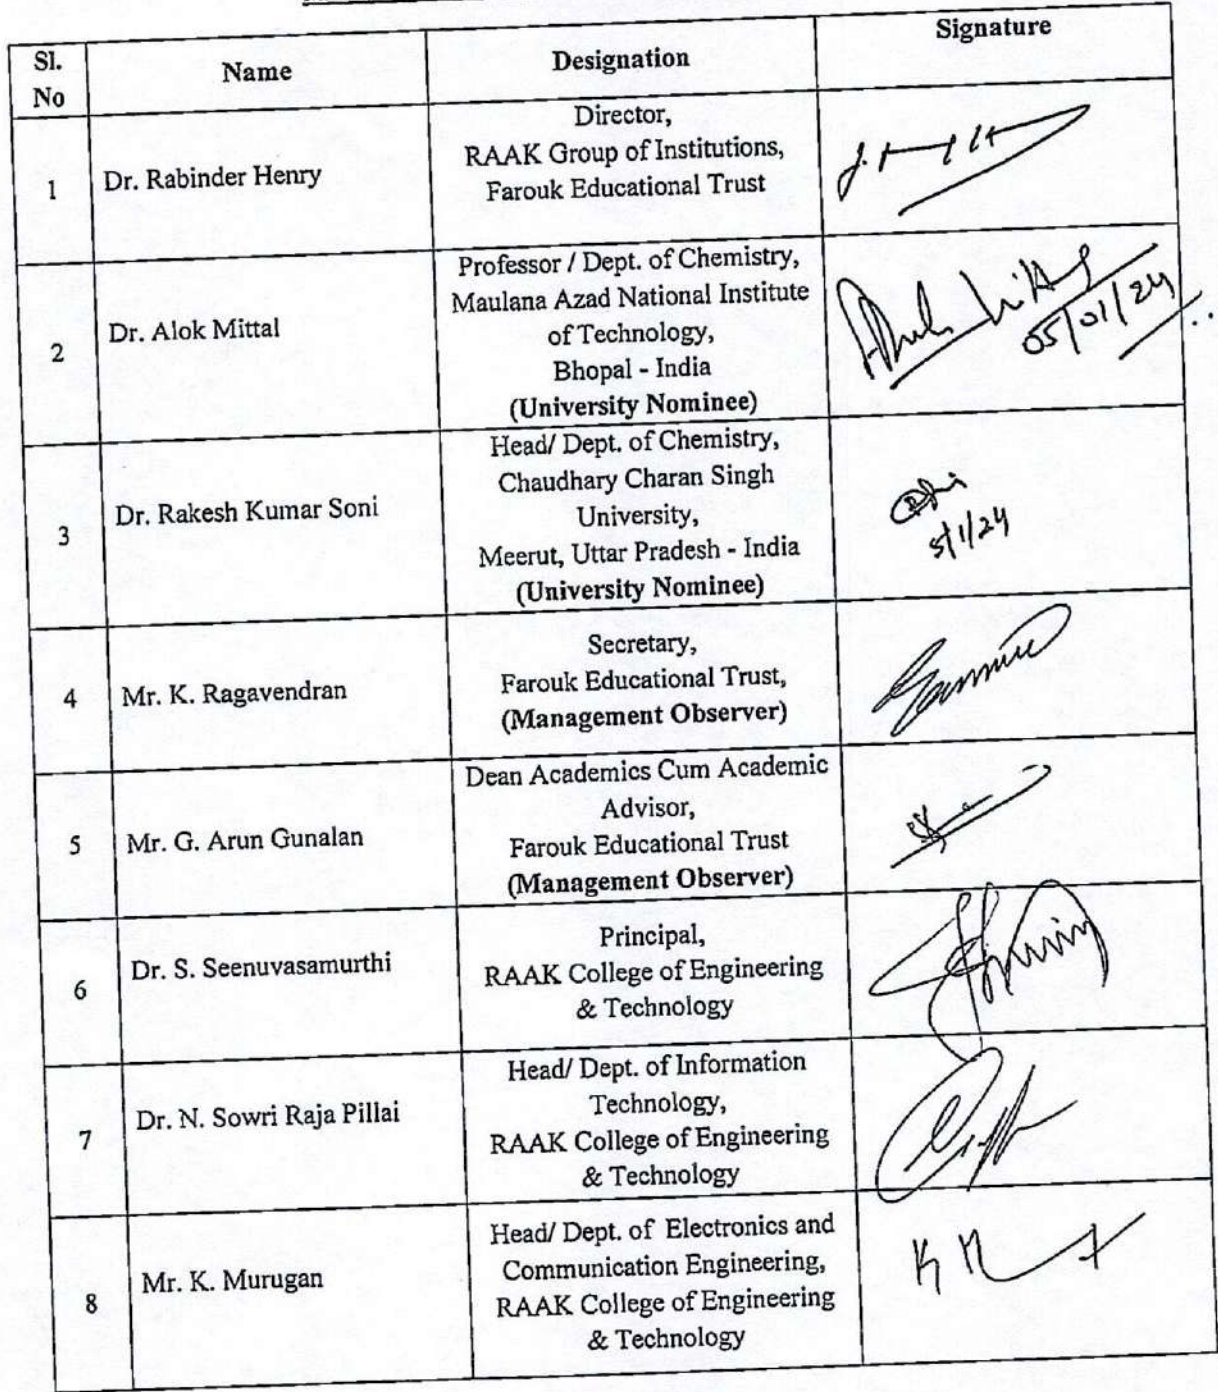 Sl.
No
Name
Designation
Signature
1
Dr. Rabinder Henry
Director,
RAAK Group of Institutions,
Farouk Educational Trust
2
Dr. Alok Mittal
Professor / Dept. of Chemistry,
Maulana Azad National Institute
of Technology,
Bhopal - India
(University Nominee)
05/01/24
3
Dr. Rakesh Kumar Soni
Head/ Dept. of Chemistry,
Chaudhary Charan Singh
University,
Meerut, Uttar Pradesh - India
(University Nominee)
5/1/24
4
Mr. K. Ragavendran
Secretary,
Farouk Educational Trust,
(Management Observer)
5
Mr. G. Arun Gunalan
Dean Academics Cum Academic
Advisor,
Farouk Educational Trust
(Management Observer)
6
Dr. S. Seenuvasamurthi
Principal,
RAAK College of Engineering
& Technology
7
Dr. N. Sowri Raja Pillai
Head/ Dept. of Information
Technology,
RAAK College of Engineering
& Technology
8
Mr. K. Murugan
Head/ Dept. of Electronics and
Communication Engineering,
RAAK College of Engineering
& Technology